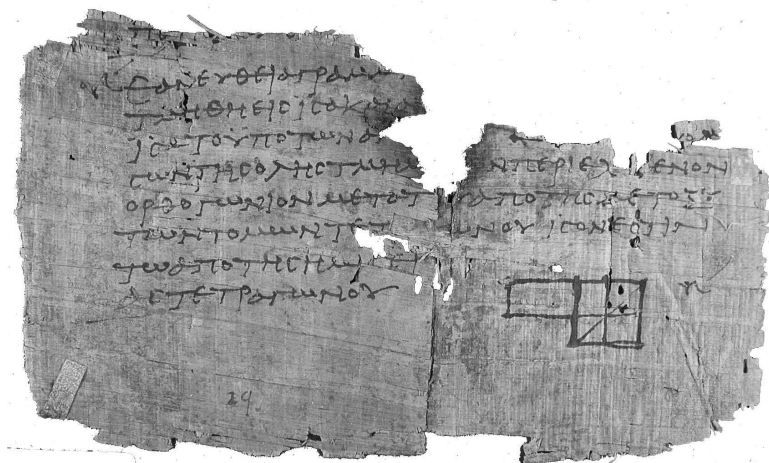 ΕΑΝΕΥΘΕΙΑΓΡΑΜΜ
ΤΜΗΘΗΕΙΣΙΣΑΚΑΙΑ
ΙΣΑΤΟΥΠΟΤΩΝΑ
ΣΩΝΤΗΣΟΛΗΣΤΜΗΜ ΝΠΕΡΙΕΧ ΜΕΝΟΝ
ΟΡΘΟΓΩΝΙΟΝΜΕΤΑΤΟΥΑΠΟΤΗΣΜΕΤΟΞΥ
ΤΩΝΤΟΜΩΝΤΕΤ ΩΝΟΥΙΣΟΝΕΣΤΙΝ
ΤΩΑΠΟΤΗΣΗΜΙΣΕΙ
ΑΣΤΕΤΡΑΓΩΝΟΥ
29